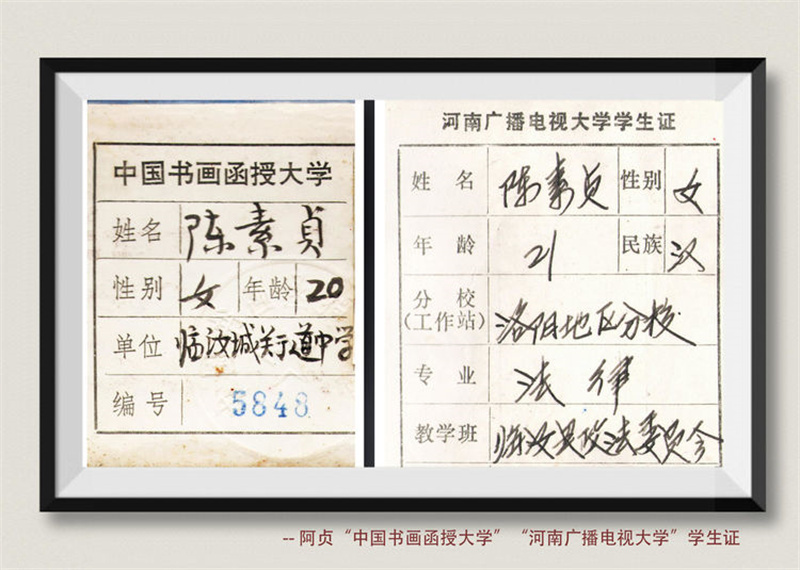 中国书画函授大学
姓名 陈素贞
性别 女 年龄 20
单位 临汝城关于道中学
编号 5848
河南广播电视大学学生证
姓名 陈素贞 性别 女
年龄 21 民族 汉
分校
(工作站) 洛阳地区分校
专业 法律
教学班 临汝县政法委员会
-- 阿贞“中国书画函授大学” “河南广播电视大学”学生证